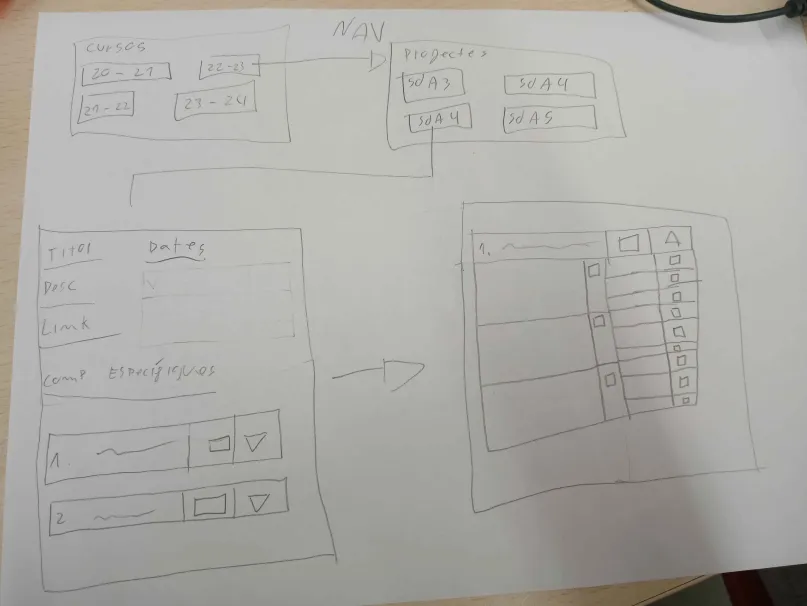 NAV
cursos
20-21
22-23
21-22
23-24
Projectes
SdA3
SdA4
SdA4
SdA5
Titol
Dates
Desc
Link
Comp Específiques
1.
2
1.